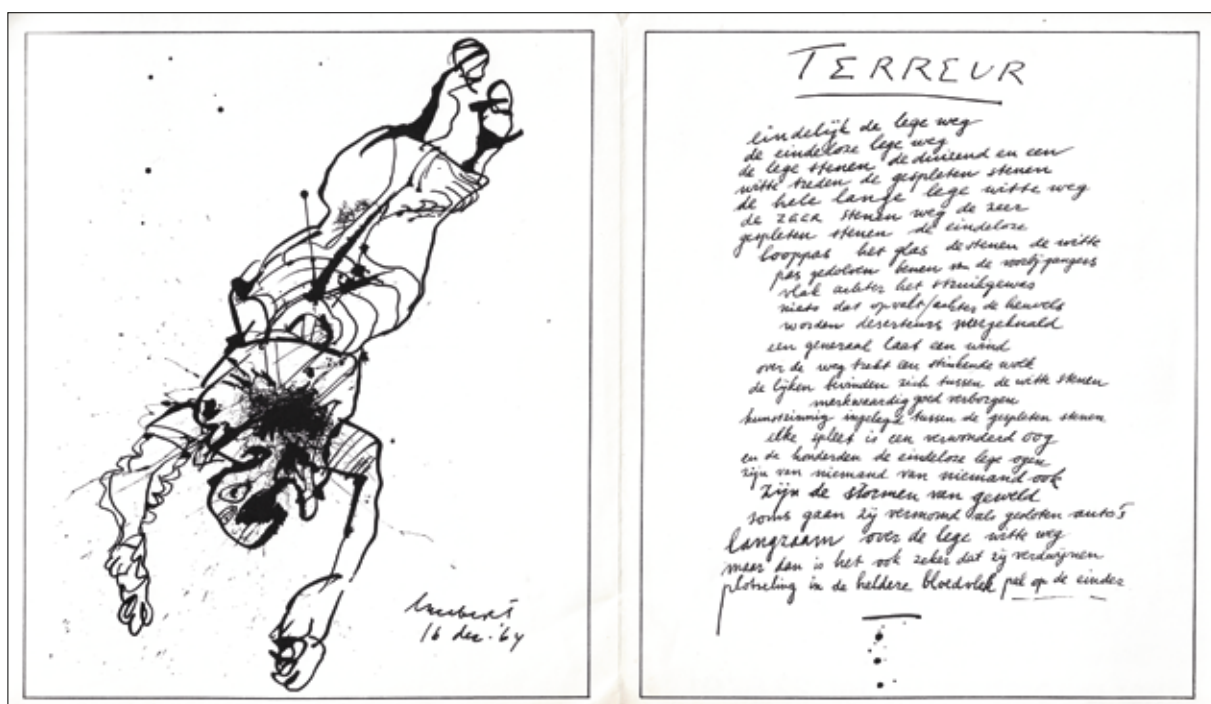 lambert
16 dec. '64
TERREUR
eindelijk de lege weg
de eindeloze lege weg
de lege stenen de duizend en een
witte treden de gespleten stenen
de hele lange lege witte weg
de zaar stenen weg de zeer
gespleten stenen de eindeloze
looppas het glas de stenen de witte
pas gedolven benen van de voorbijgangers
vlak achter het struikgewas
niets dat opvalt/achter de heuvels
worden deserteurs neergeknald
een generaal laat een wind
over de weg trekt een stinkende wolk
de lijken bevinden zich tussen de witte stenen
merkwaardig goed verborgen
kunstzinnig ingelegd tussen de gespleten stenen
elke spleet is een verwonderd oog
en de honderden de eindeloze lege ogen
zijn van niemand van niemand ook
zijn de stormen van geweld
soms gaan zij vermomd als gesloten auto's
langzaam over de lege witte weg
maar dan is het ook zeker dat zij verdwijnen
plotseling in de heldere bloedvlek pal op de einder